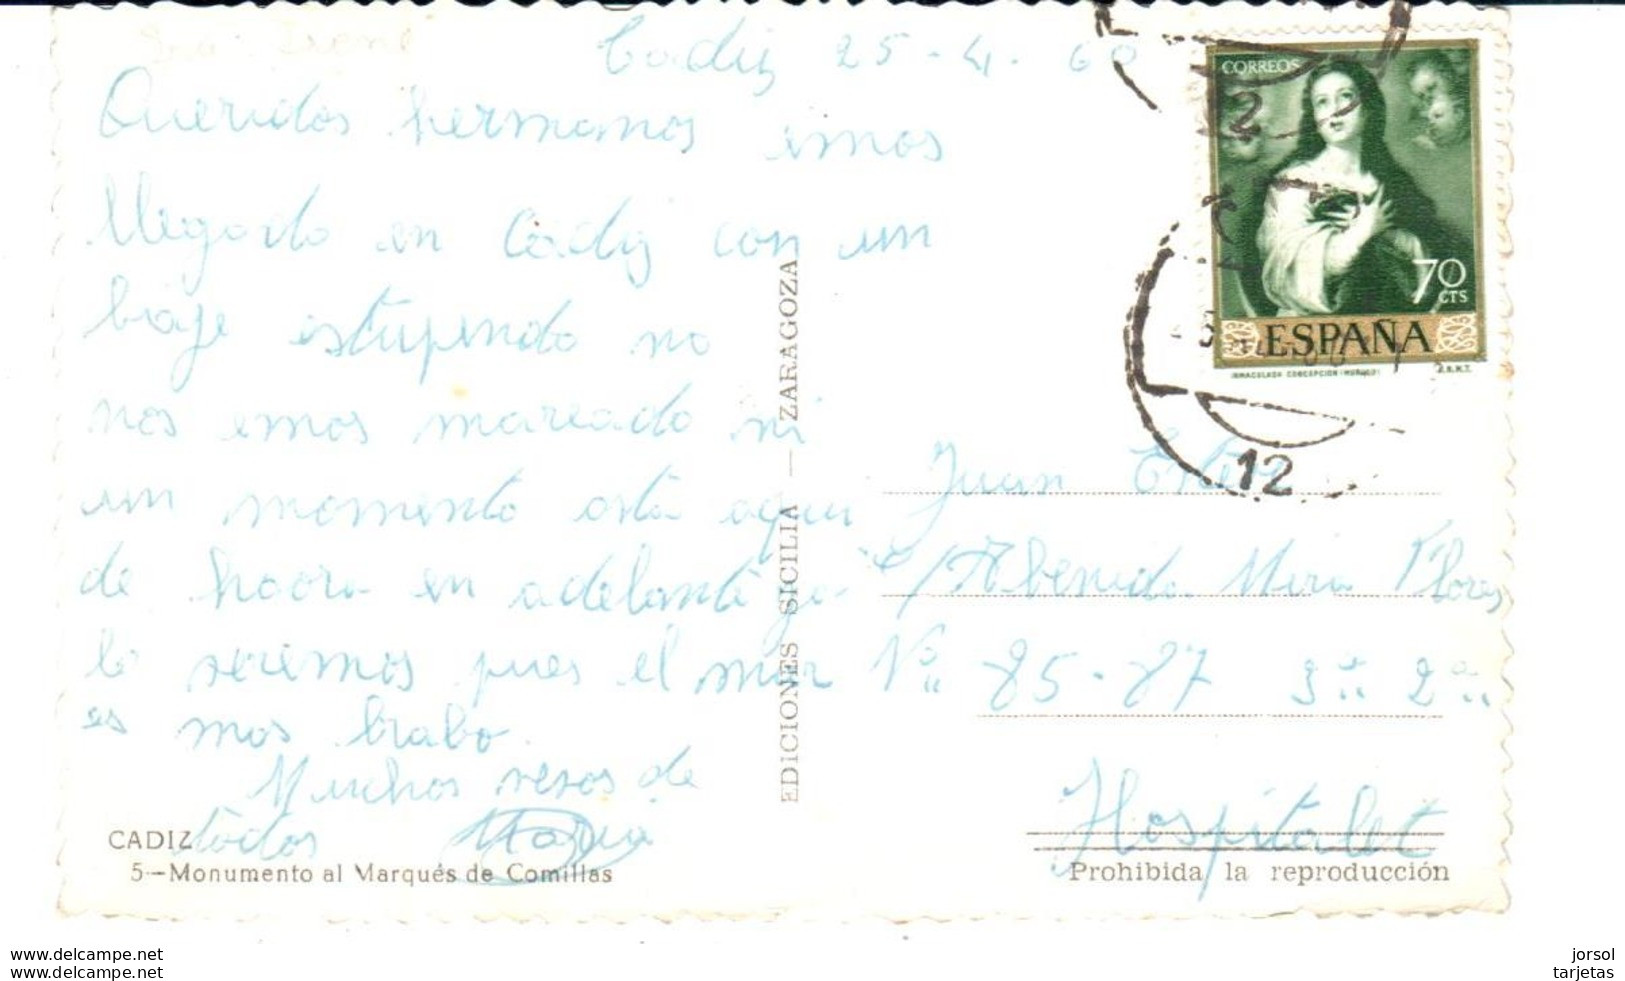 Cadiz 25-4-60
Queridos hermanos imos
llegado en Cadiz con un
biaje estupendo no
nos emos mareado ni
un momento está aqui
de haora en adelante ya
lo seremos pues el mar
es mas brabo.
Muchos vesos de
todos Maria
CADIZ
5—Monumento al Marqués de Comillas
EDICIONES SICILIA — ZARAGOZA
CORREOS
70
CTS
ESPAÑA
INMACULADA CONCEPCION (MURILLO)
F.N.M.T.
12
Juan
c/ Abenida Mira Flores
Nº 85-87 3ª 2ª
Hospitalet
Prohibida la reproducción
jorsol
tarjetas
en.todocoleccion.net
en.todocoleccion.net